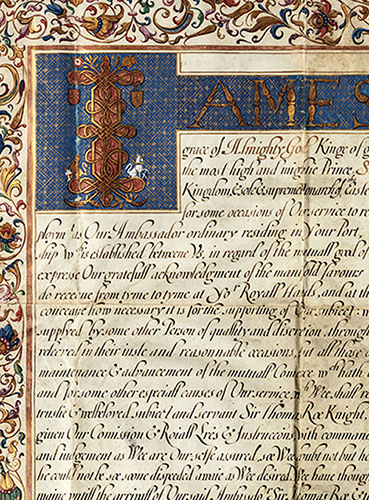 IAMES
grace of Almighty God Kinge of g
the most high and mightie Prince, S
Kingdom: sole & supreme monarch of Easte
for some occasions of Our service to re
phym as Our Ambassador ordinary residing in Your Port,
ship wch is established betweene Vs, in regard of the mutuall good of
expresse Our gratefull acknowledgment of the manifold favours
do receaue from tyme to tyme at Yor Royall Hands, and at th
conceaue how necessary it is for the supporting of Our subiects w
supplyed by some other Person of quallity and discretion, through
releeved in their iust and reasonnable occasions, but all those
maintenance & advancement of the mutuall Comerce, wch hath
and for some other especiall causes of Our service, wee shall re
trustie & welbeloved subiect and servant Sir Thomas Roe Knight,
given Our Comission & Roiall Lres & Instruccons with command
and iudgement as Wee are Our selfe assured, soe Wee doubt not but he
he could not be soe speeded awaie as Wee desired, Wee haue though
maine vntill the arrivall of Our said Ambassador Sir Thomas Roe &